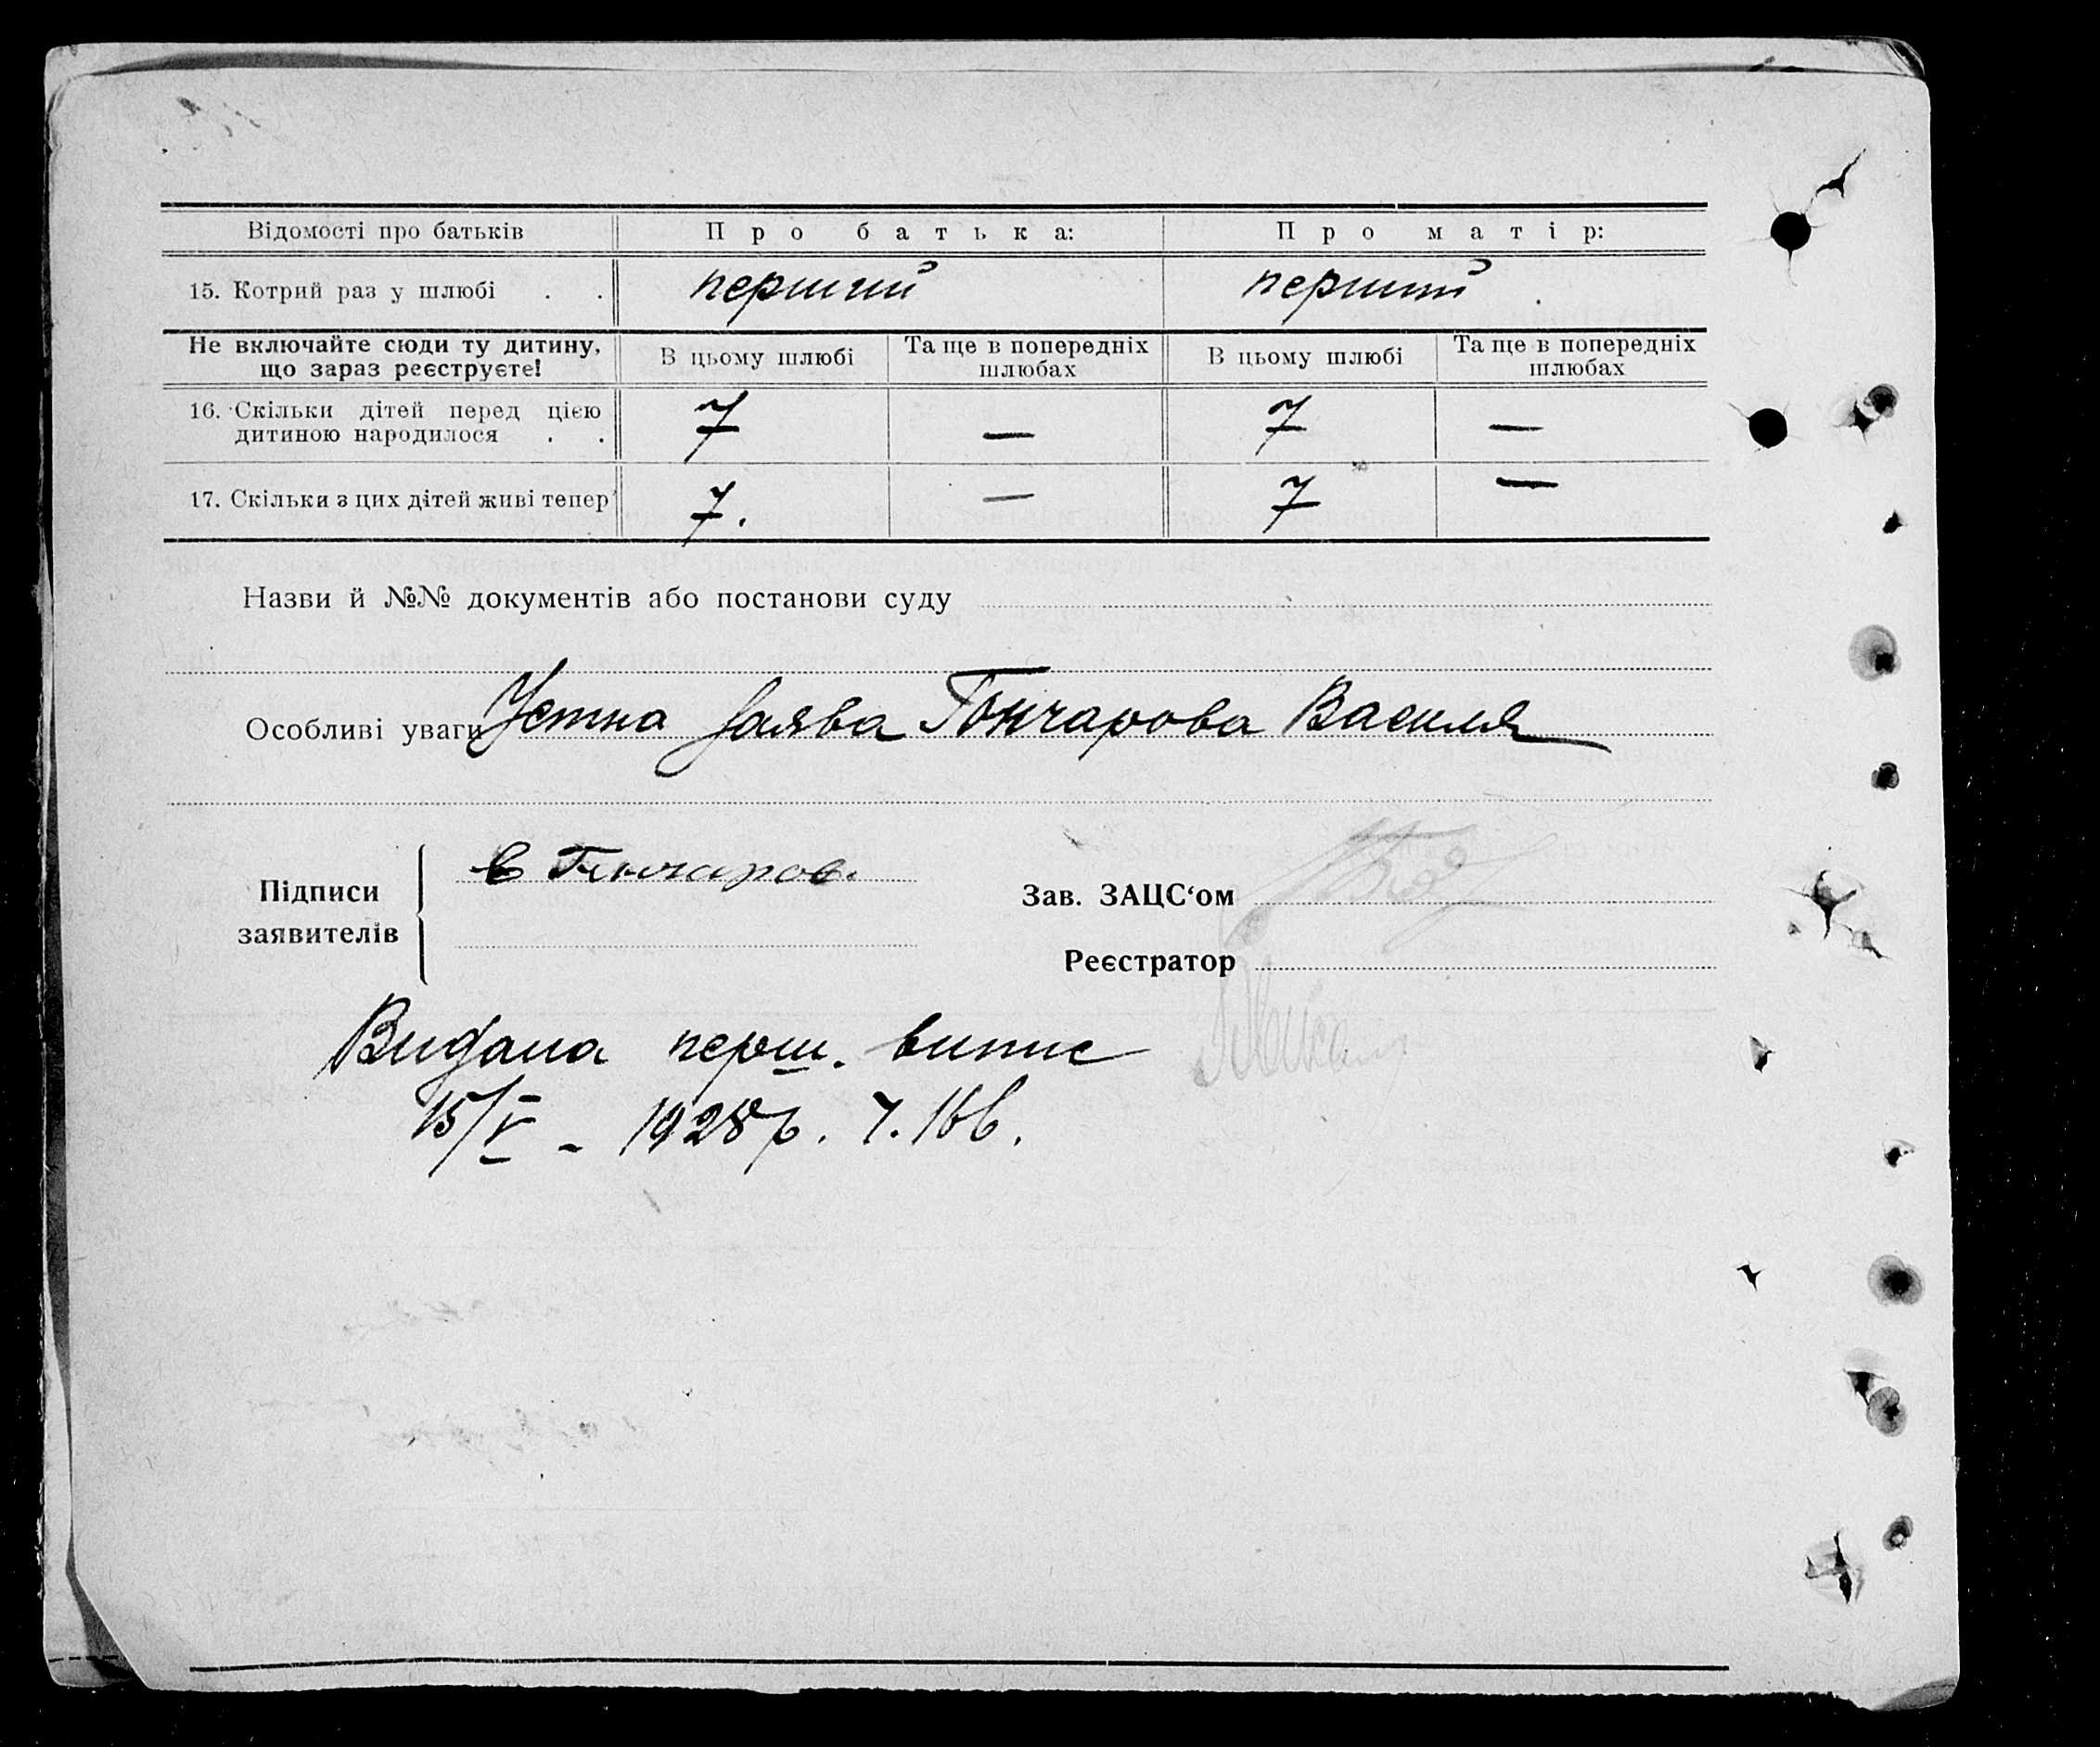 Відомості про батьків Про батька: Про матір:
15. Котрий раз у шлюбі . . перший перший
Не включайте сюди ту дитину, що зараз реєструєте! В цьому шлюбі Та ще в попередніх шлюбах В цьому шлюбі Та ще в попередніх шлюбах
16. Скільки дітей перед цією дитиною народилося . . 7 — 7 —
17. Скільки з цих дітей живі тепер 7. — 7 —
Назви й №№ документів або постанови суду
Особливі уваги Устна заява Гончарова Василя
Підписи заявителів
В Гончаров.
Зав. ЗАЦС‘ом
Реєстратор
Видана перш. випис
15/V - 1928 р. 7.